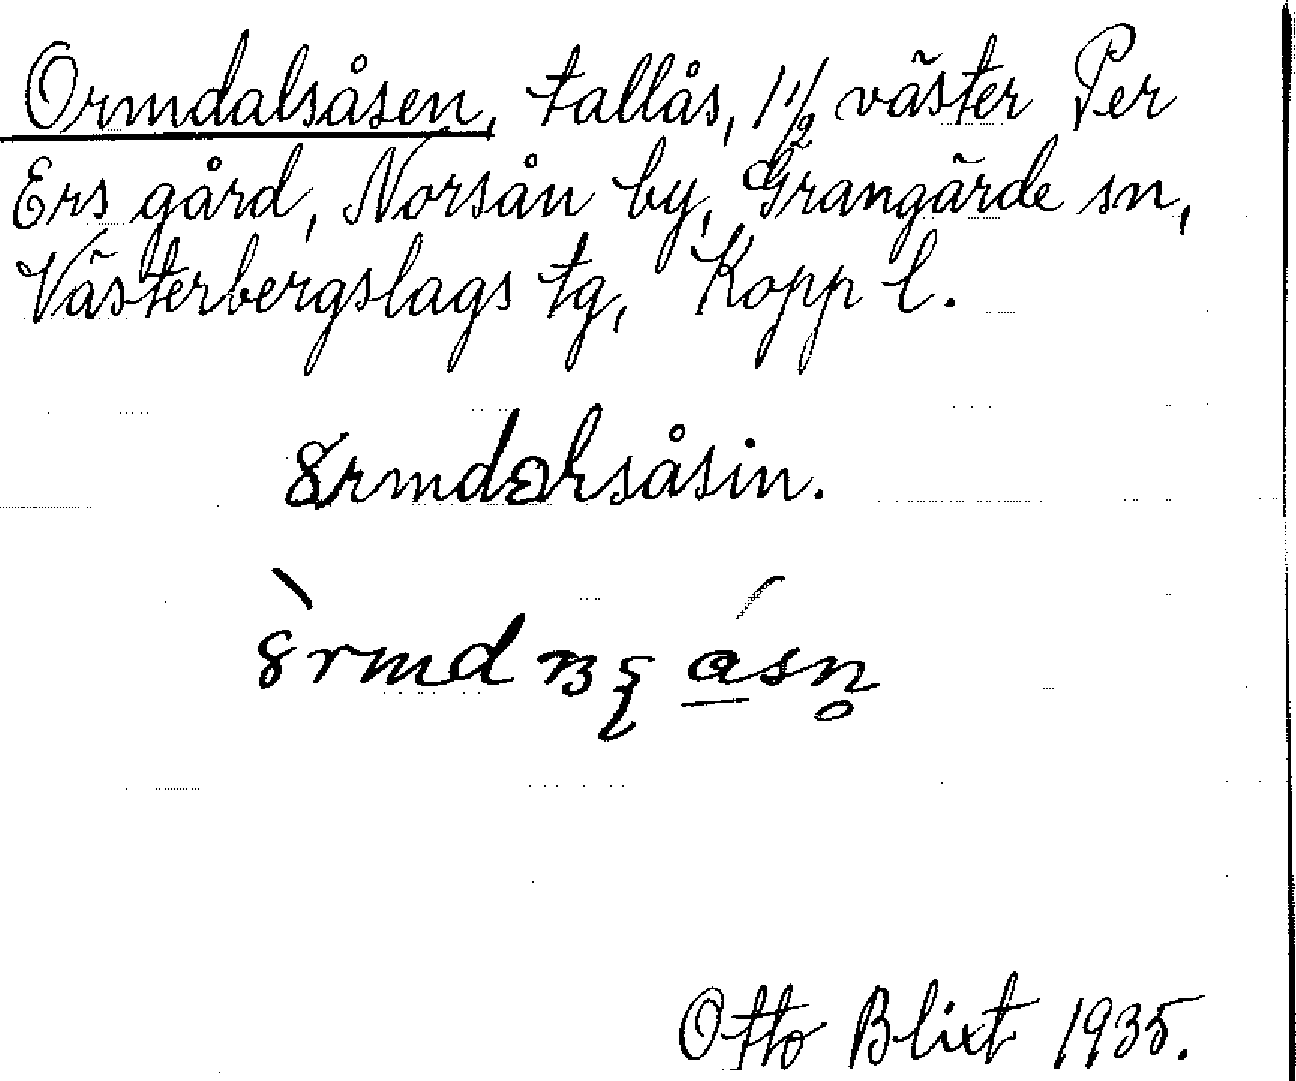 Ormdalsåsen, tallås, 1 1/2 väster Per
Ers gård, Norsån by, Grangärde sn,
Västerbergslags tg, Kopp l.
Otto Blixt 1935.